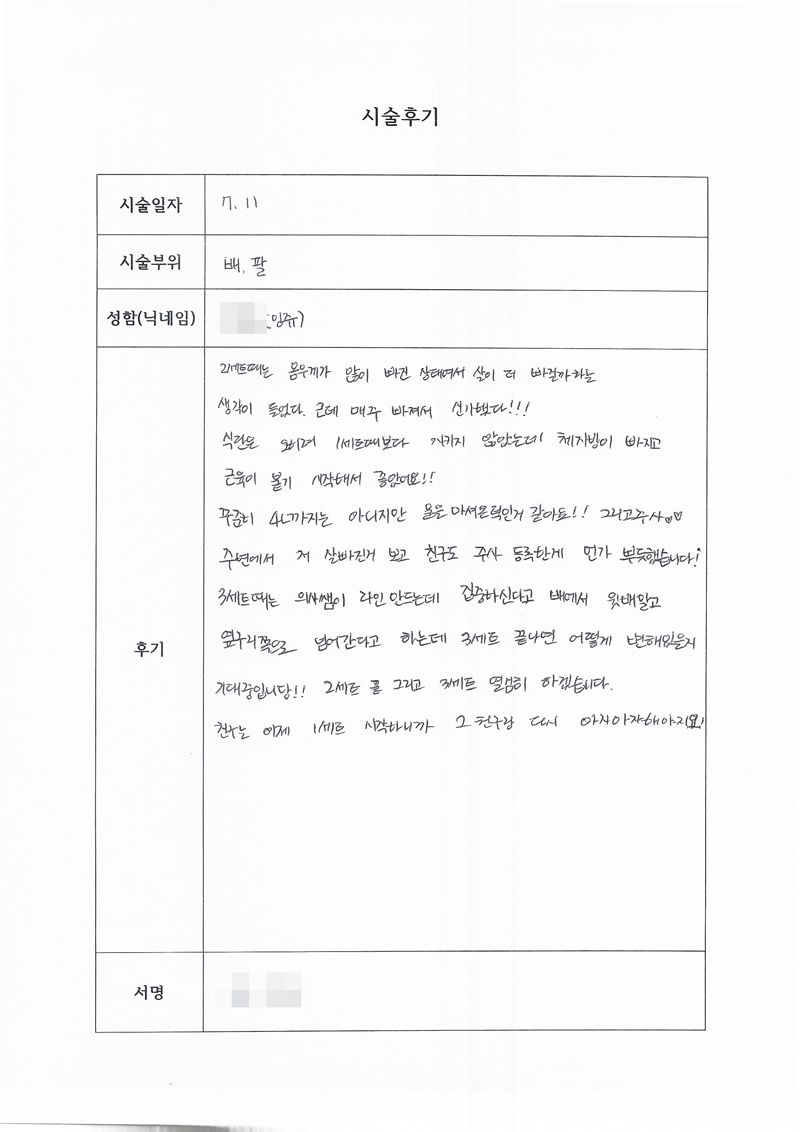 시술후기
시술일자 7. 11
시술부위 배, 팔
성함(닉네임) (잉쥬)
후기
2세트때는 몸무게가 많이 빠진 상태여서 살이 더 빠질까하는
생각이 들었다. 근데 매주 빠져서 신기했다!!!
식단은 오히려 1세트때보다 지키지 않았는데 체지방이 빠지고
근육이 붙기 시작해서 좋았어요!!
꾸준히 4L까지는 아니지만 물을 마셔온덕인거 같아요!! 그리고주사♡♡
주변에서 저 살빠진거 보고 친구도 주사 등록한게 먼가 뿌듯했습니다!
3세트때는 의사쌤이 라인 만드는데 집중하신다고 배에서 윗배말고
옆구리쪽으로 넘어간다고 하는데 3세트 끝나면 어떻게 변해있을지
기대중입니당!! 2세트 끝 그리고 3세트 열심히 하겠습니다.
친구는 이제 1세트 시작하니까 그 친구랑 다시 아자아자해야지요!
서명